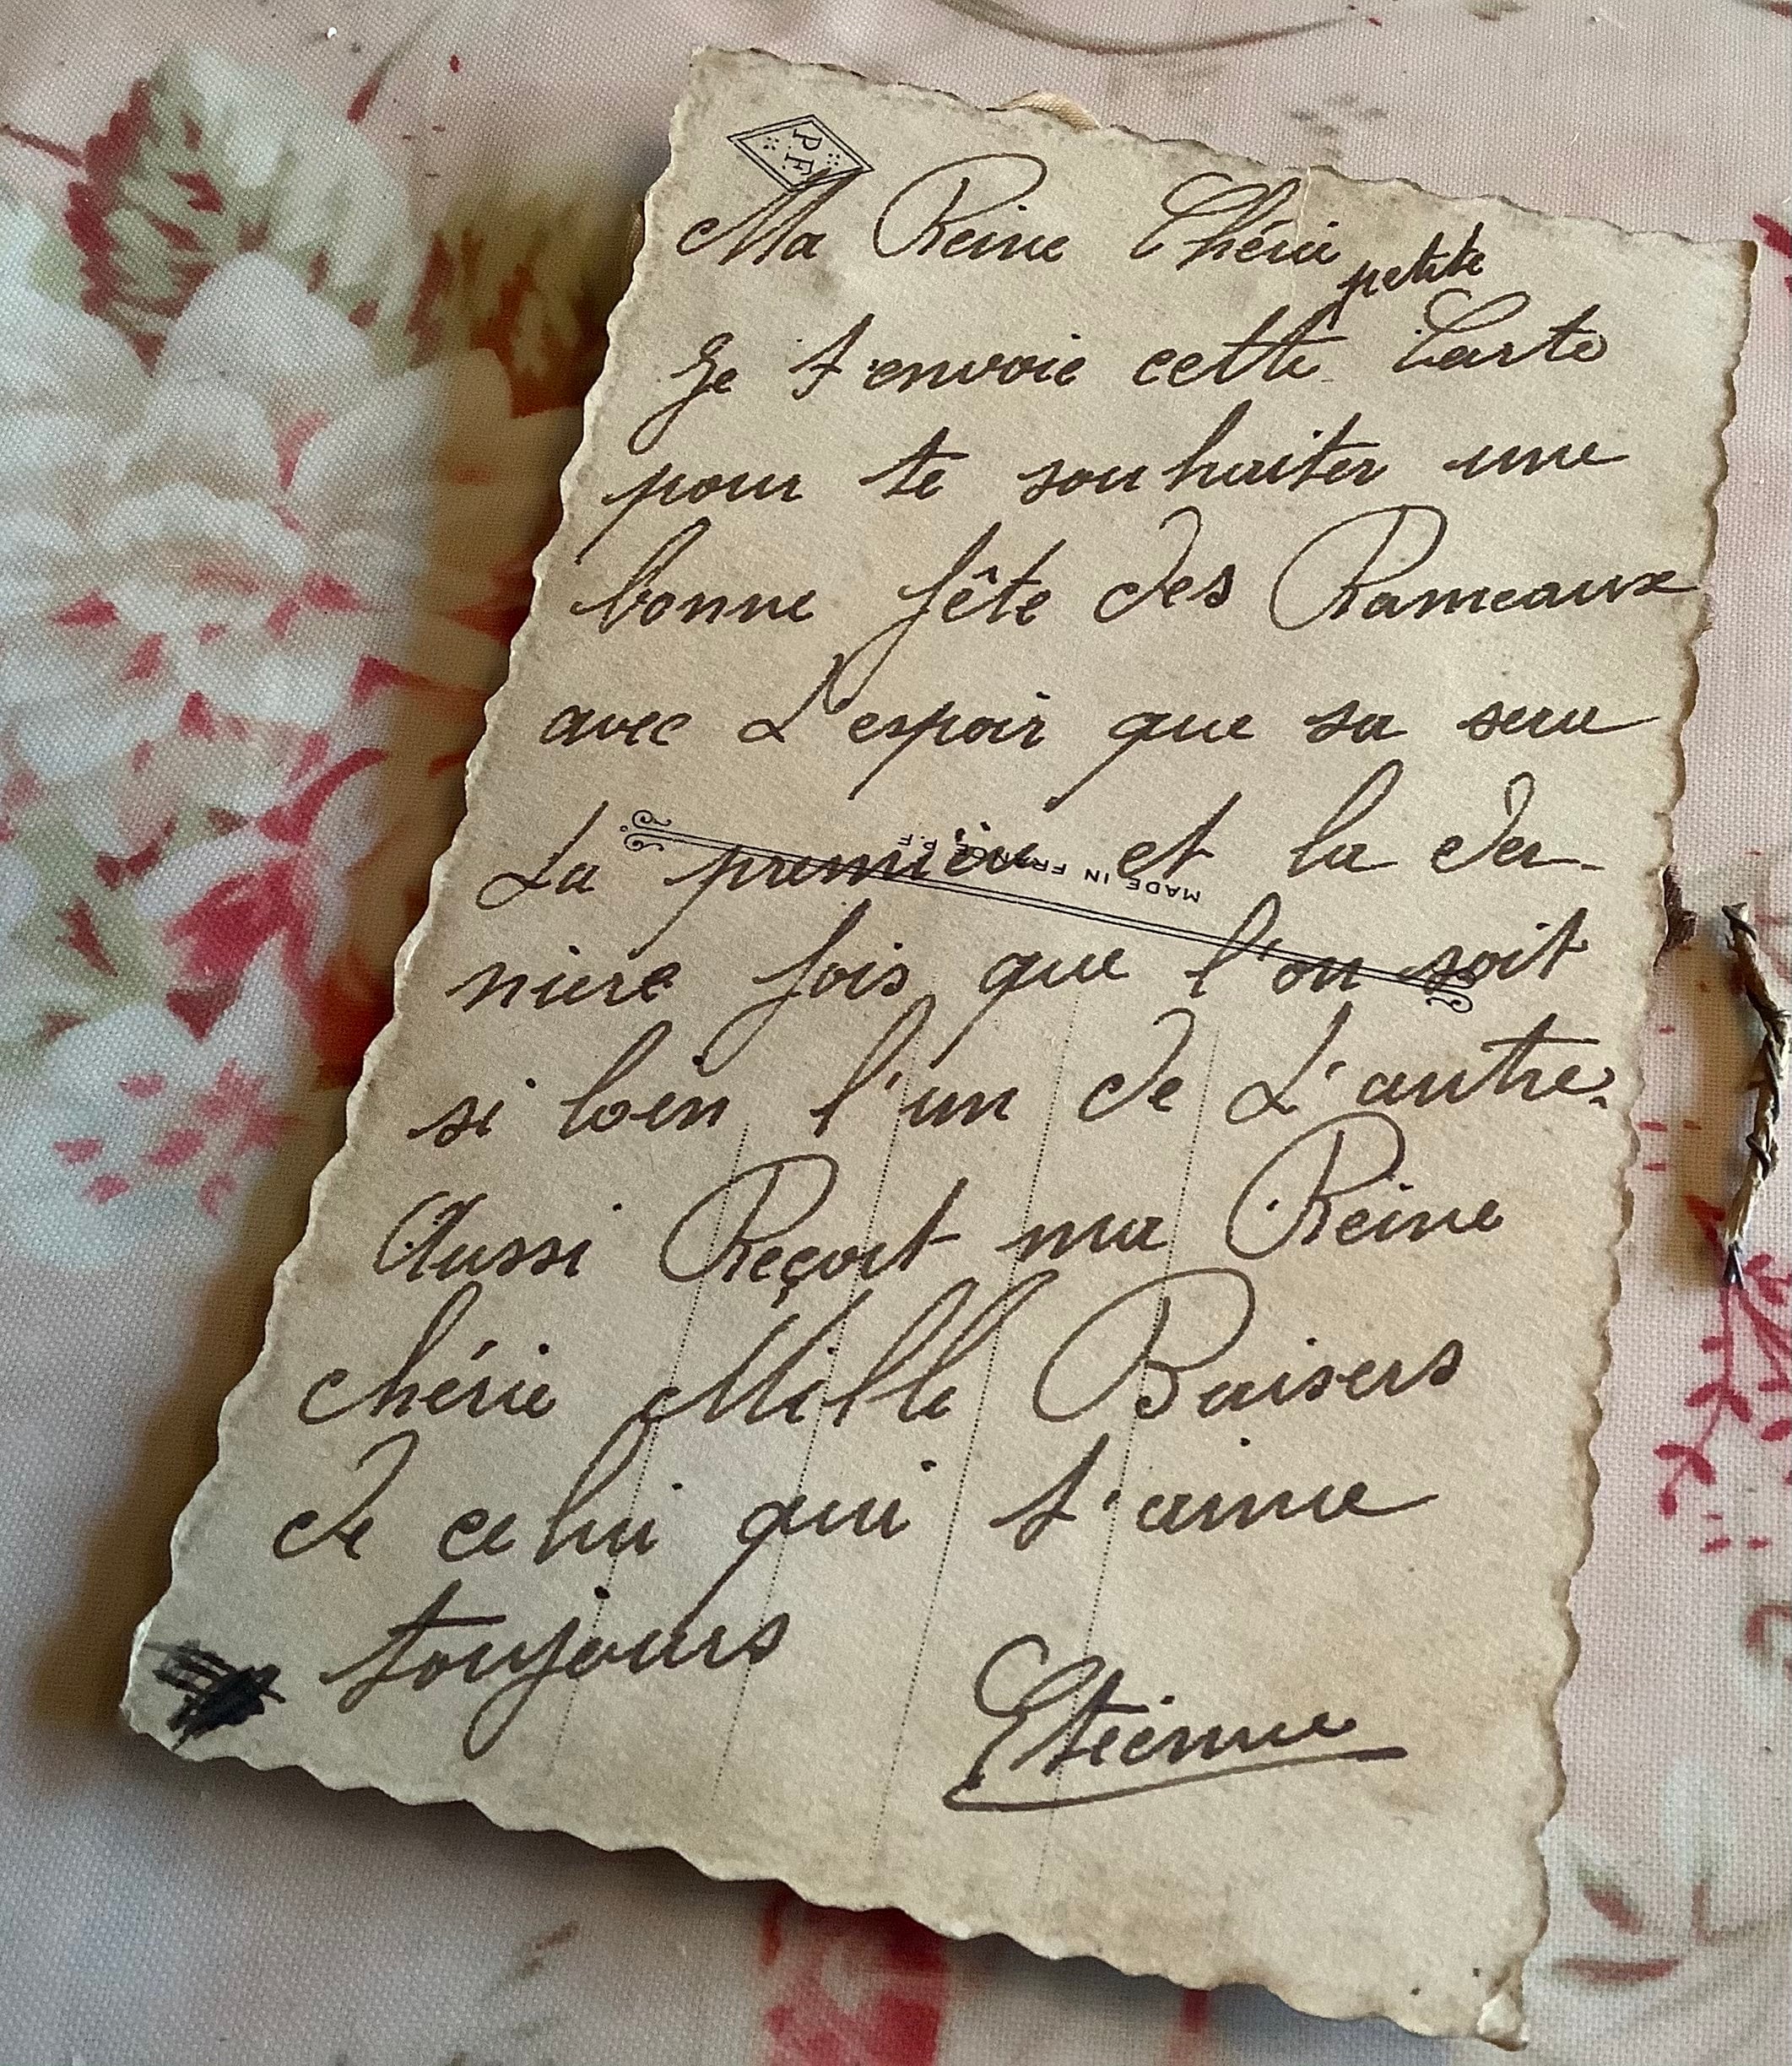 P F
Ma Reine Chérie
petite
Je t'envoie cette Carte
pour te souhaiter une
bonne fête des Rameaux
avec L'espoir que sa sera
La première et la der-
niere fois que l'on soit
MADE IN FRANCE P.F
si loin l'un de L'autre.
Aussi Reçoit ma Reine
chérie Mille Baisers
de celui qui t'aime
toujours
Etienne